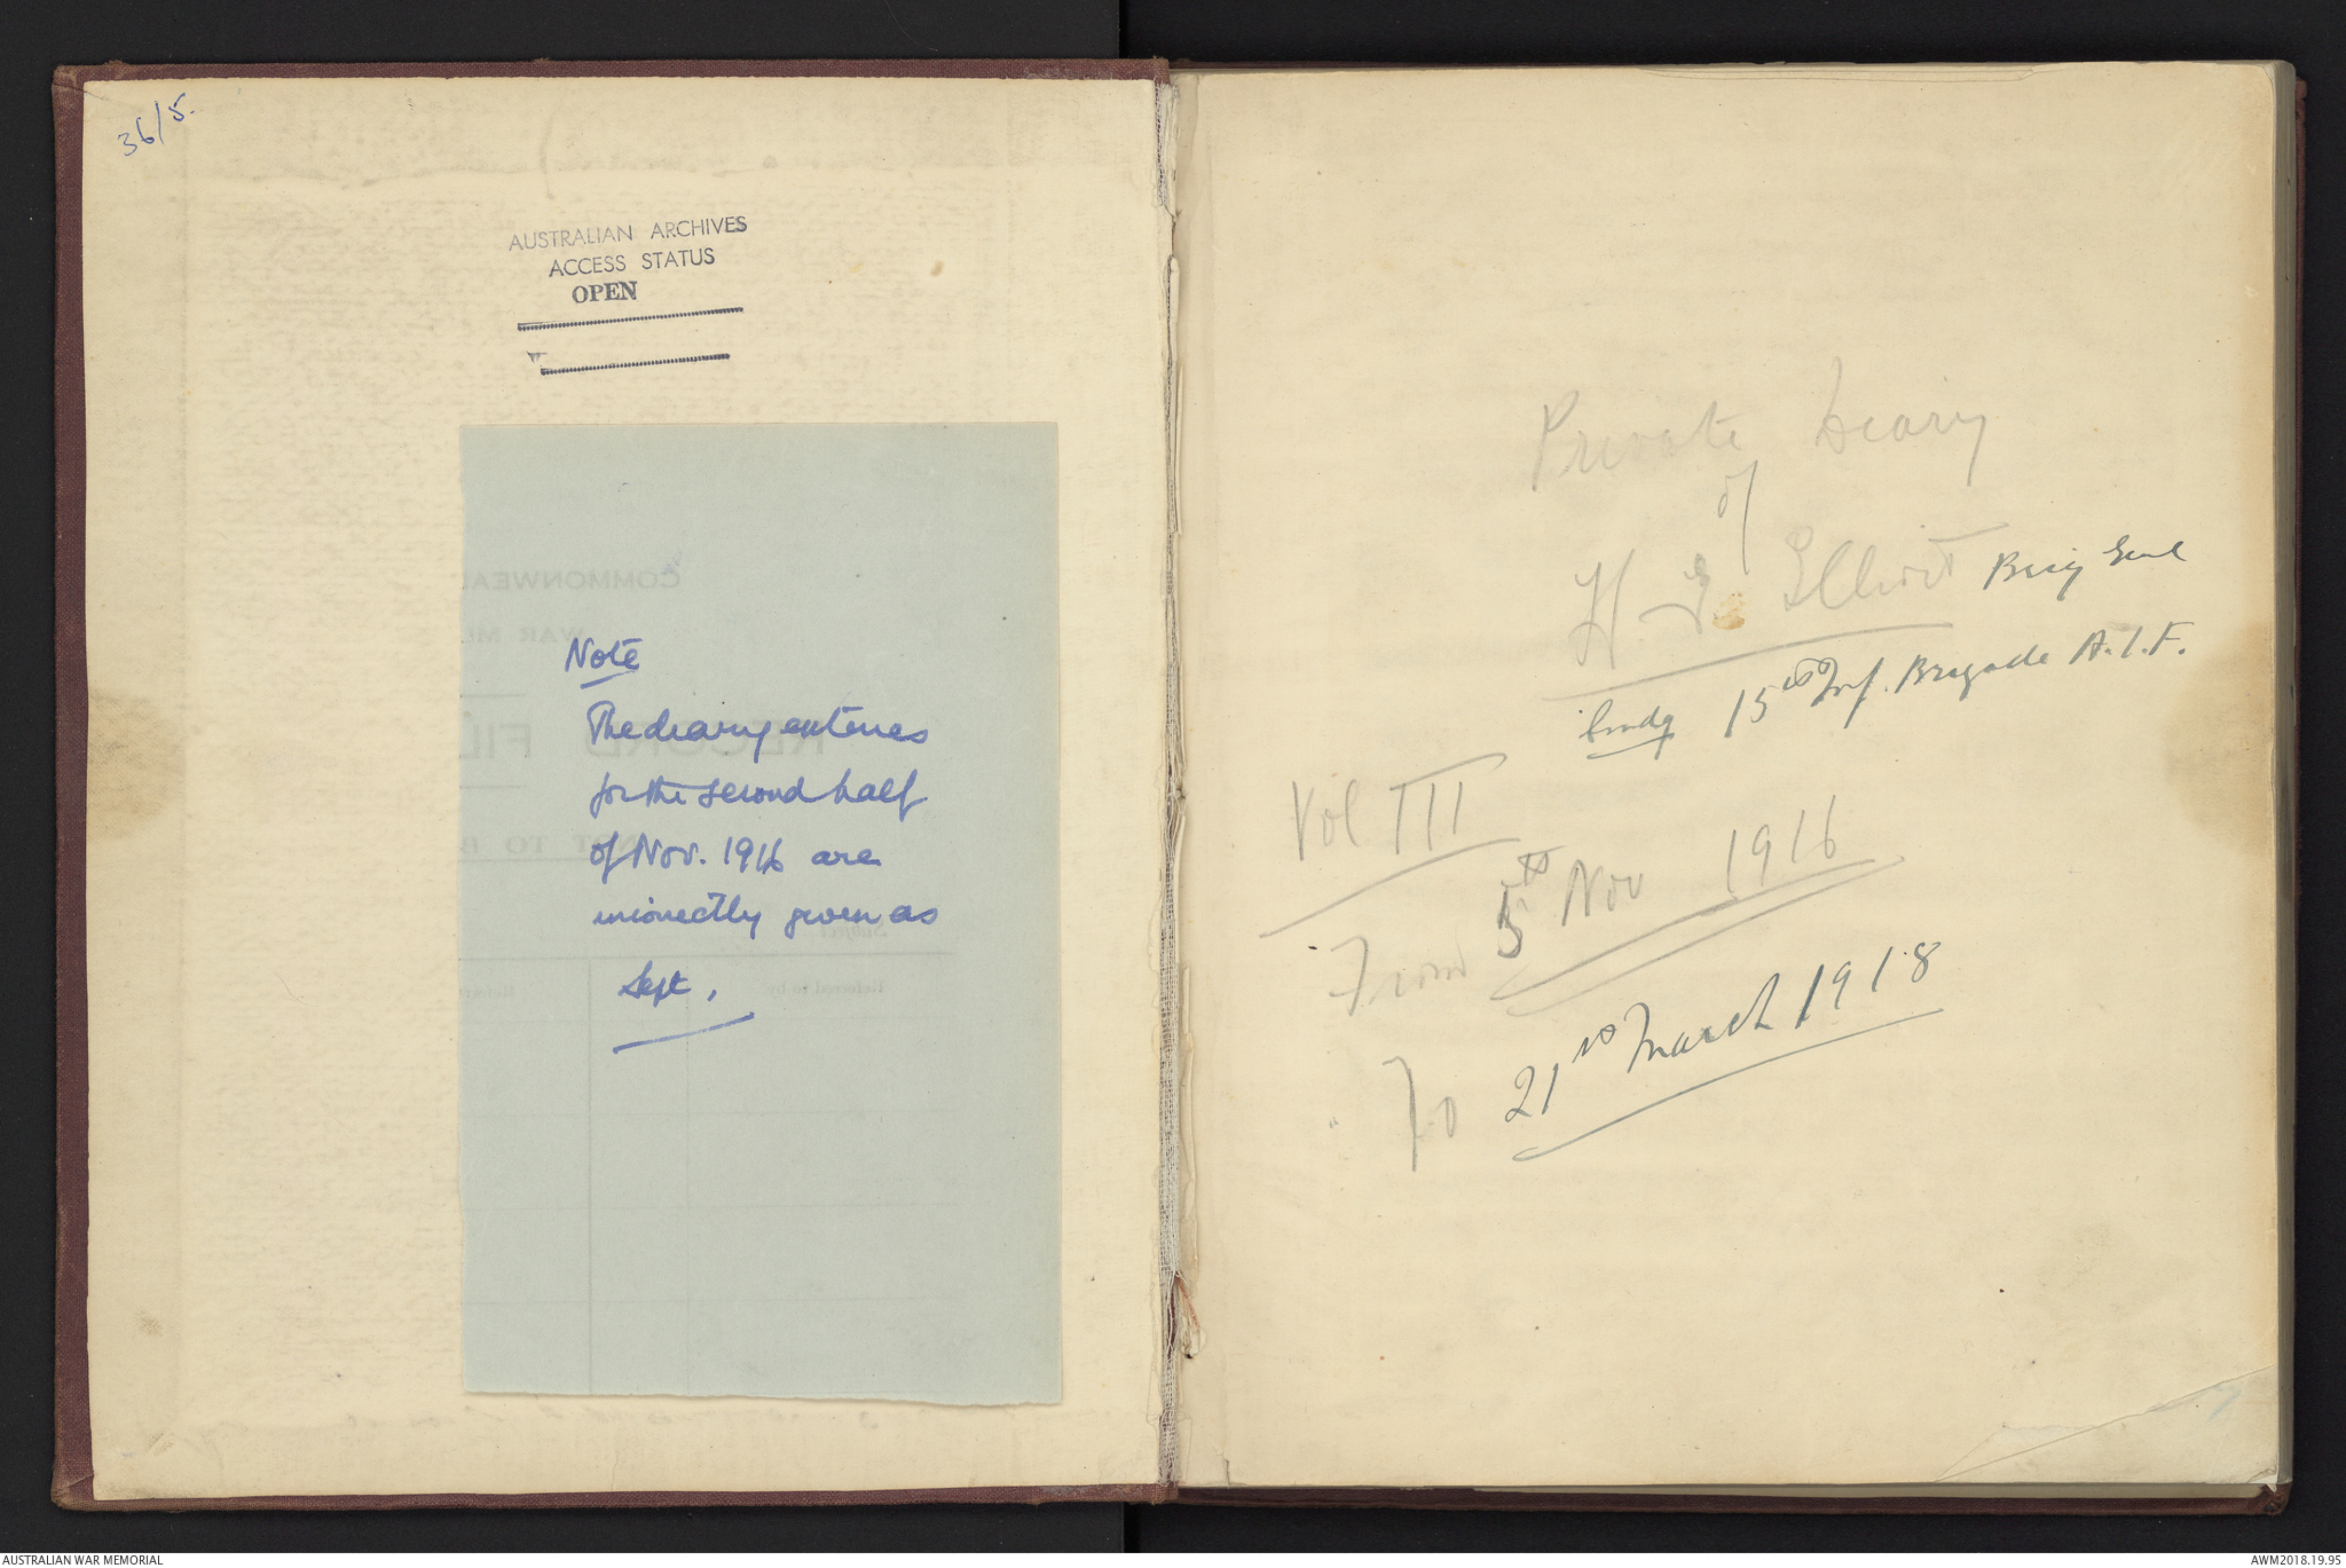 36/5.
AUSTRALIAN ARCHIVES
ACCESS STATUS
OPEN
Note
The diary entries
for the second half
of Nov. 1916 are
incorrectly given as
Sept.
Private Diary
of
H. E. Elliott Brig Genl
Cmdg 15th Inf. Brigade A.I.F.
Vol III
From 5th Nov 1916
To 21st March 1918
AUSTRALIAN WAR MEMORIAL
AWM2018.19.95